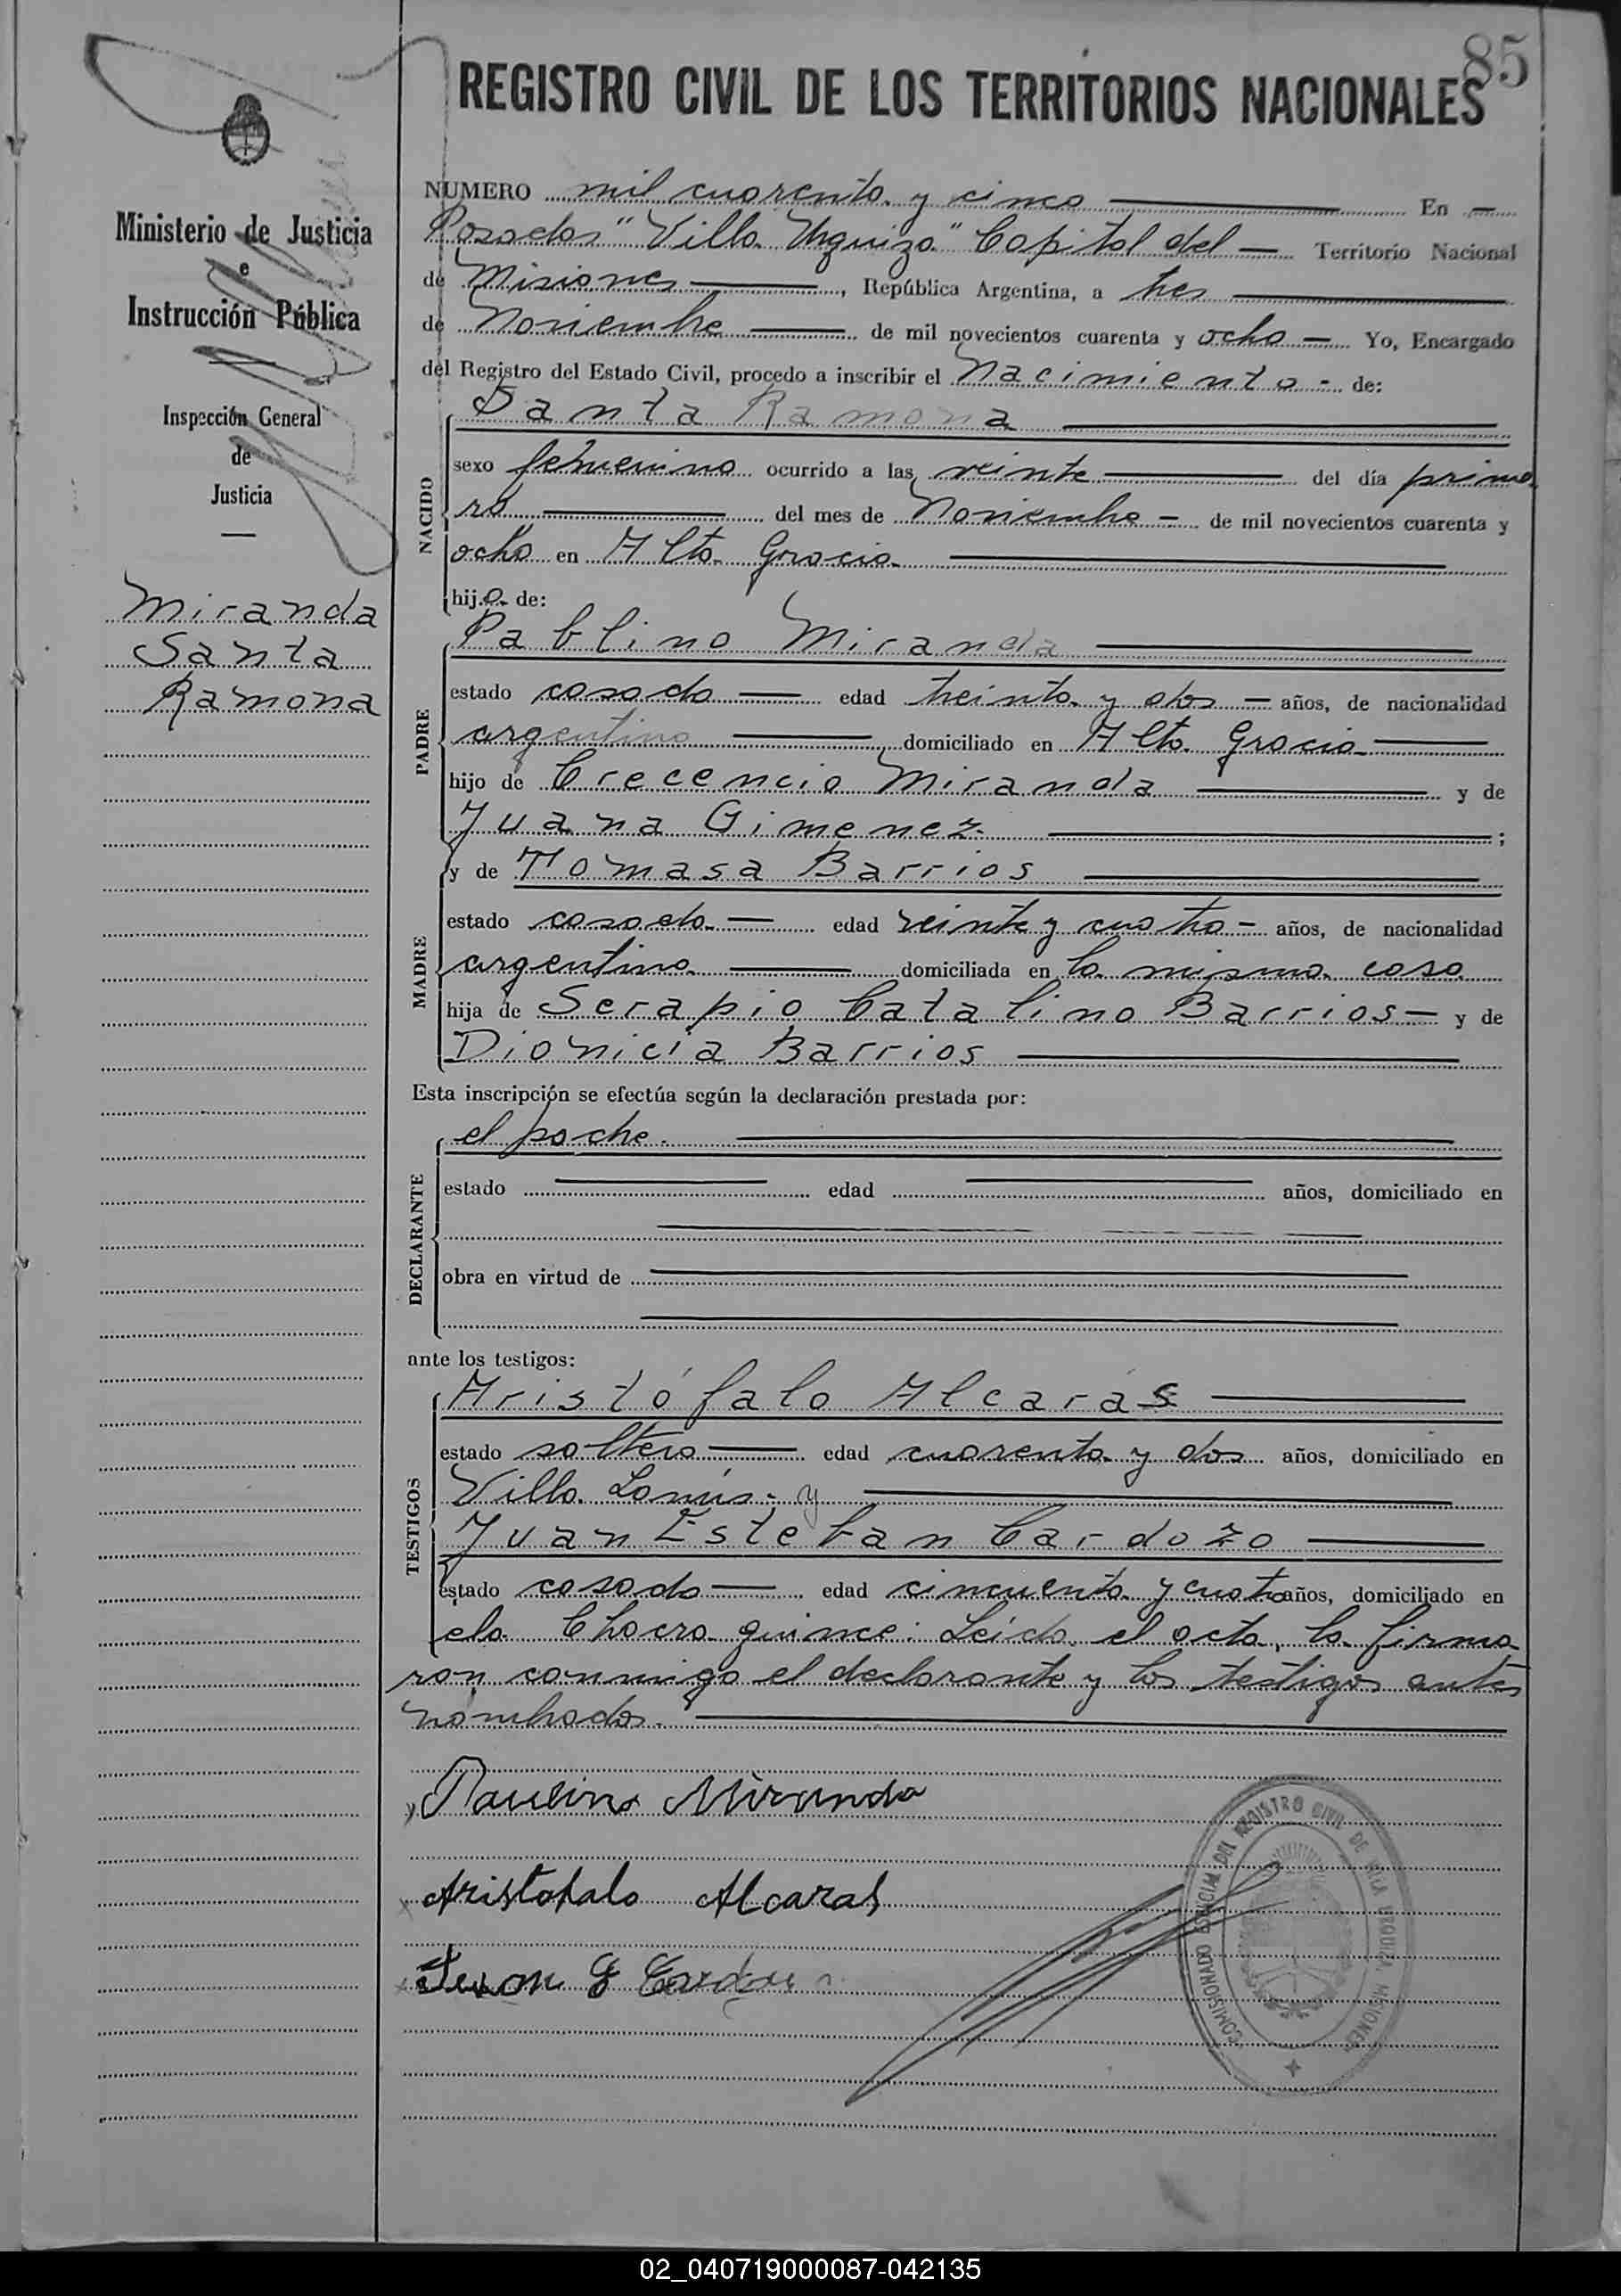 85
REGISTRO CIVIL DE LOS TERRITORIOS NACIONALES
Ministerio de Justicia
e
Instrucción Pública
Inspección General
de
Justicia
Miranda
Santa
Ramona
NUMERO mil cuarenta y cinco En
Posadas "Villa Urquiza" Capital del Territorio Nacional
de Misiones, República Argentina, a tres
de Noviembre de mil novecientos cuarenta y ocho Yo, Encargado
del Registro del Estado Civil, procedo a inscribir el Nacimiento de:
Santa Ramona
NACIDO
sexo femenino ocurrido a las veinte del día prime
ro del mes de Noviembre de mil novecientos cuarenta y
ocho en Alta Gracia
hija de:
Pablino Miranda
PADRE
estado casado edad treinta y dos años, de nacionalidad
argentino domiciliado en Alta Gracia
hijo de Crecencio Miranda y de
Juana Gimenez ;
y de Tomasa Barrios
MADRE
estado casada edad veinte y cuatro años, de nacionalidad
argentina domiciliada en la misma casa
hija de Serapio Catalino Barrios y de
Dionicia Barrios
Esta inscripción se efectúa según la declaración prestada por:
el padre.
DECLARANTE
estado edad años, domiciliado en
obra en virtud de
ante los testigos:
Aristófalo Alcarás
TESTIGOS
estado soltero edad cuarenta y dos años, domiciliado en
Villa Lanús; y
Juan Esteban Cardozo
estado casado edad cincuenta y cuatro años, domiciliado en
la Chacra quince: Leída el acta, la firma
ron conmigo el declarante y los testigos antes
nombrados.
Paulino Miranda
Aristofalo Alcaras
Juan E Cardozo
COMISIONADO ESPECIAL DEL REGISTRO CIVIL DE VILLA URQUIZA MISIONES
02_040719000087-042135